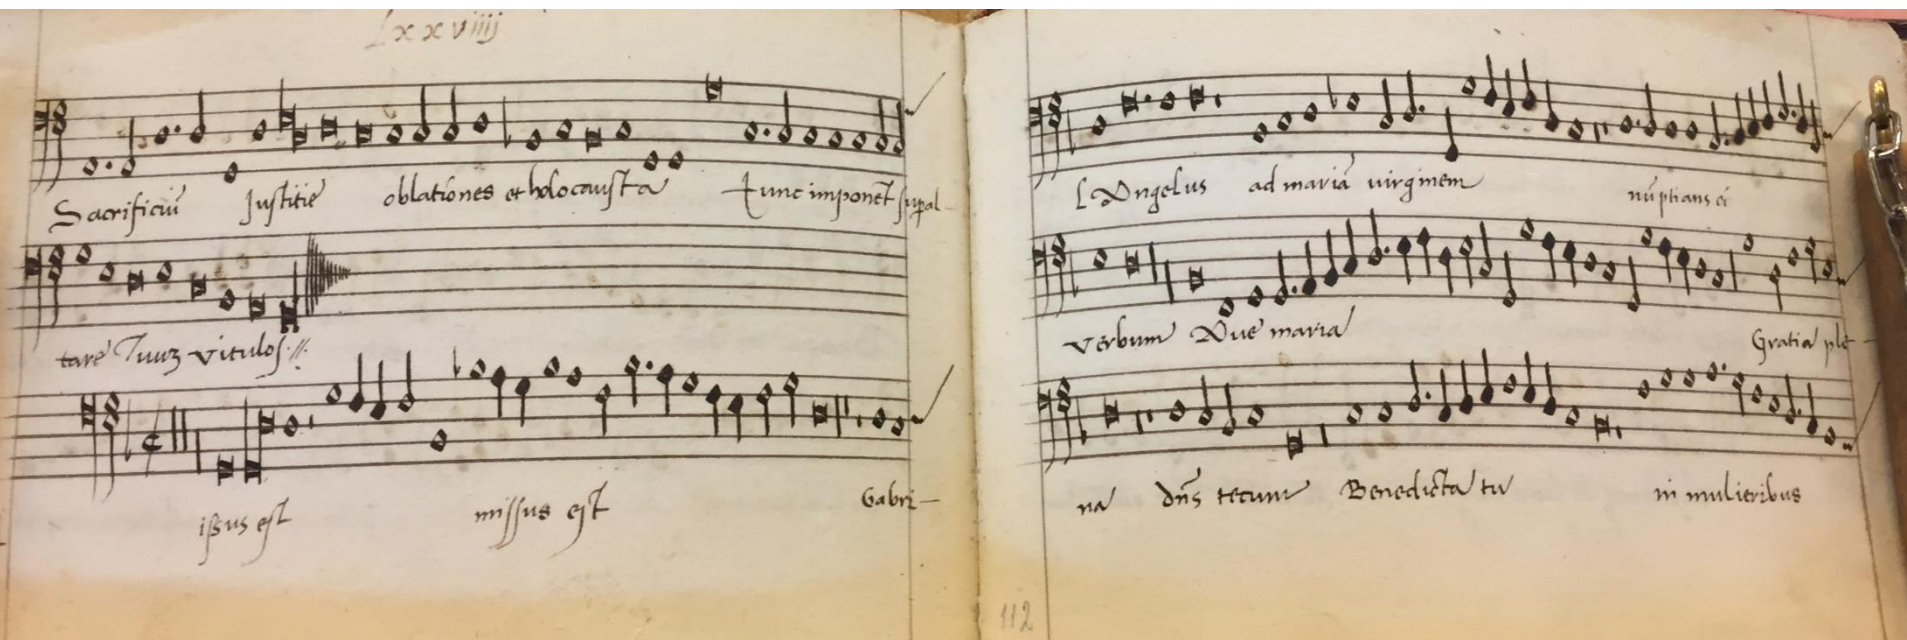 Lxxviiij
Sacrificiū Justitie oblationes et holocausta Tunc imponēt sup al-
tare Tuuʒ vitulos ://:
issus est missus est Gabri-
L Angelus ad mariā virginem nūptians ei
verbum Ave maria Gratia ple-
na dn̄s tecum Benedicta tu in mulieribus
112